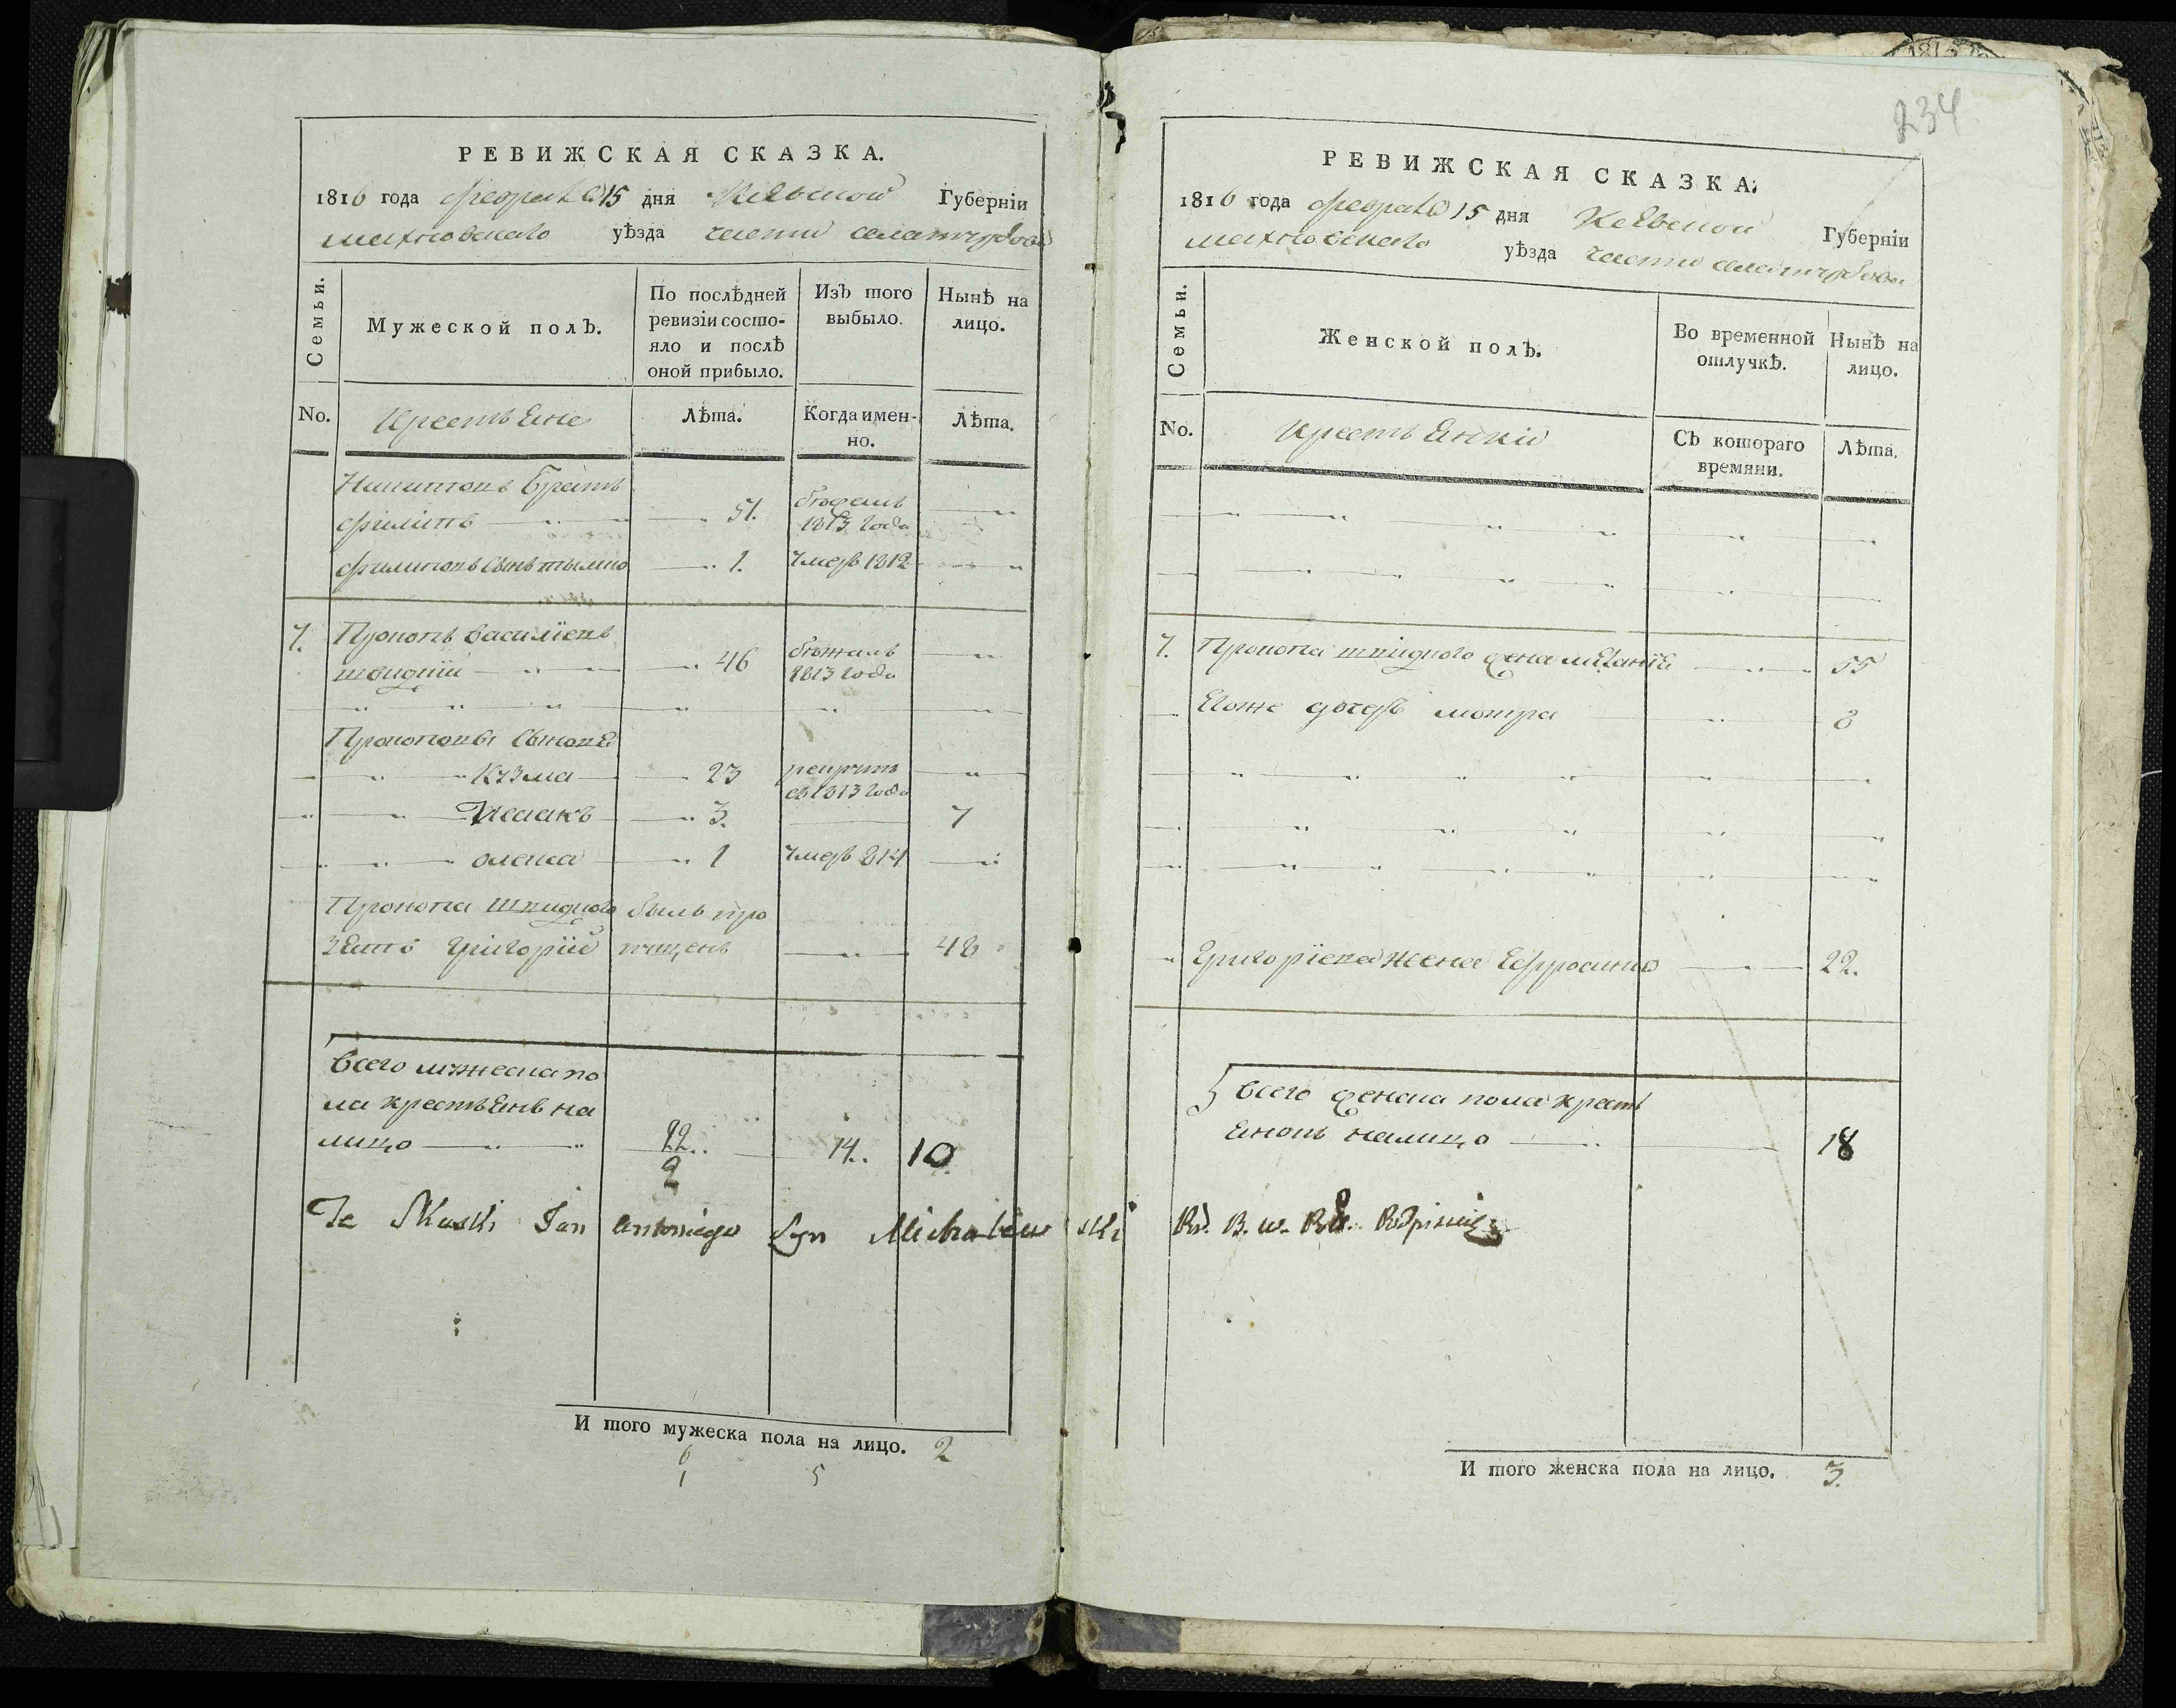 РЕВИЖСКАЯ СКАЗКА.
1816 года февраля 15 дня Киевской Губерніи
махновскаго уѣзда части села
Семьи.
Мужеской полъ.
По послѣдней
ревизіи состо-
яло и послѣ
оной прибыло.
Изъ того
выбыло.
Нынѣ на
лицо.
No.
Крестьяне
Лѣта.
Когда имен-
но.
Лѣта.
братъ
филипъ 51. 1813 года
филиповъ сынъ тымко 1. умеръ 1812
7. Прокопъ василіевъ
швидкій 46 бѣжалъ
1813 года
Прокоповы сыновя
Кузма 23
въ 1813 года
Исаакъ 3. 7
олекса 1 умеръ 814
Прокопа швидкого былъ про
зять григорій пущенъ 48
всего мужеска по
ла крестьянъ на
лицо 22. 14. 10
2
Te Skaski Jan Antoniego Syn Michalewski
И того мужеска пола на лицо. 2
6
1 5
234
РЕВИЖСКАЯ СКАЗКА.
1816 года февраля 15 дня Киевской Губерніи
махновскаго уѣзда части села
Семьи.
Женской полъ.
Во временной
отлучкѣ.
Нынѣ на
лицо.
No.
крестьянки
Съ котораго
времяни.
Лѣта.
7. Прокопа швидкого жена меланія 55
Егоже дочерь мотра 8
Григоріева жена Ефросиния 22.
всего женска пола кресть
янокъ налицо 18
Podpisuię
И того женска пола на лицо. 3.